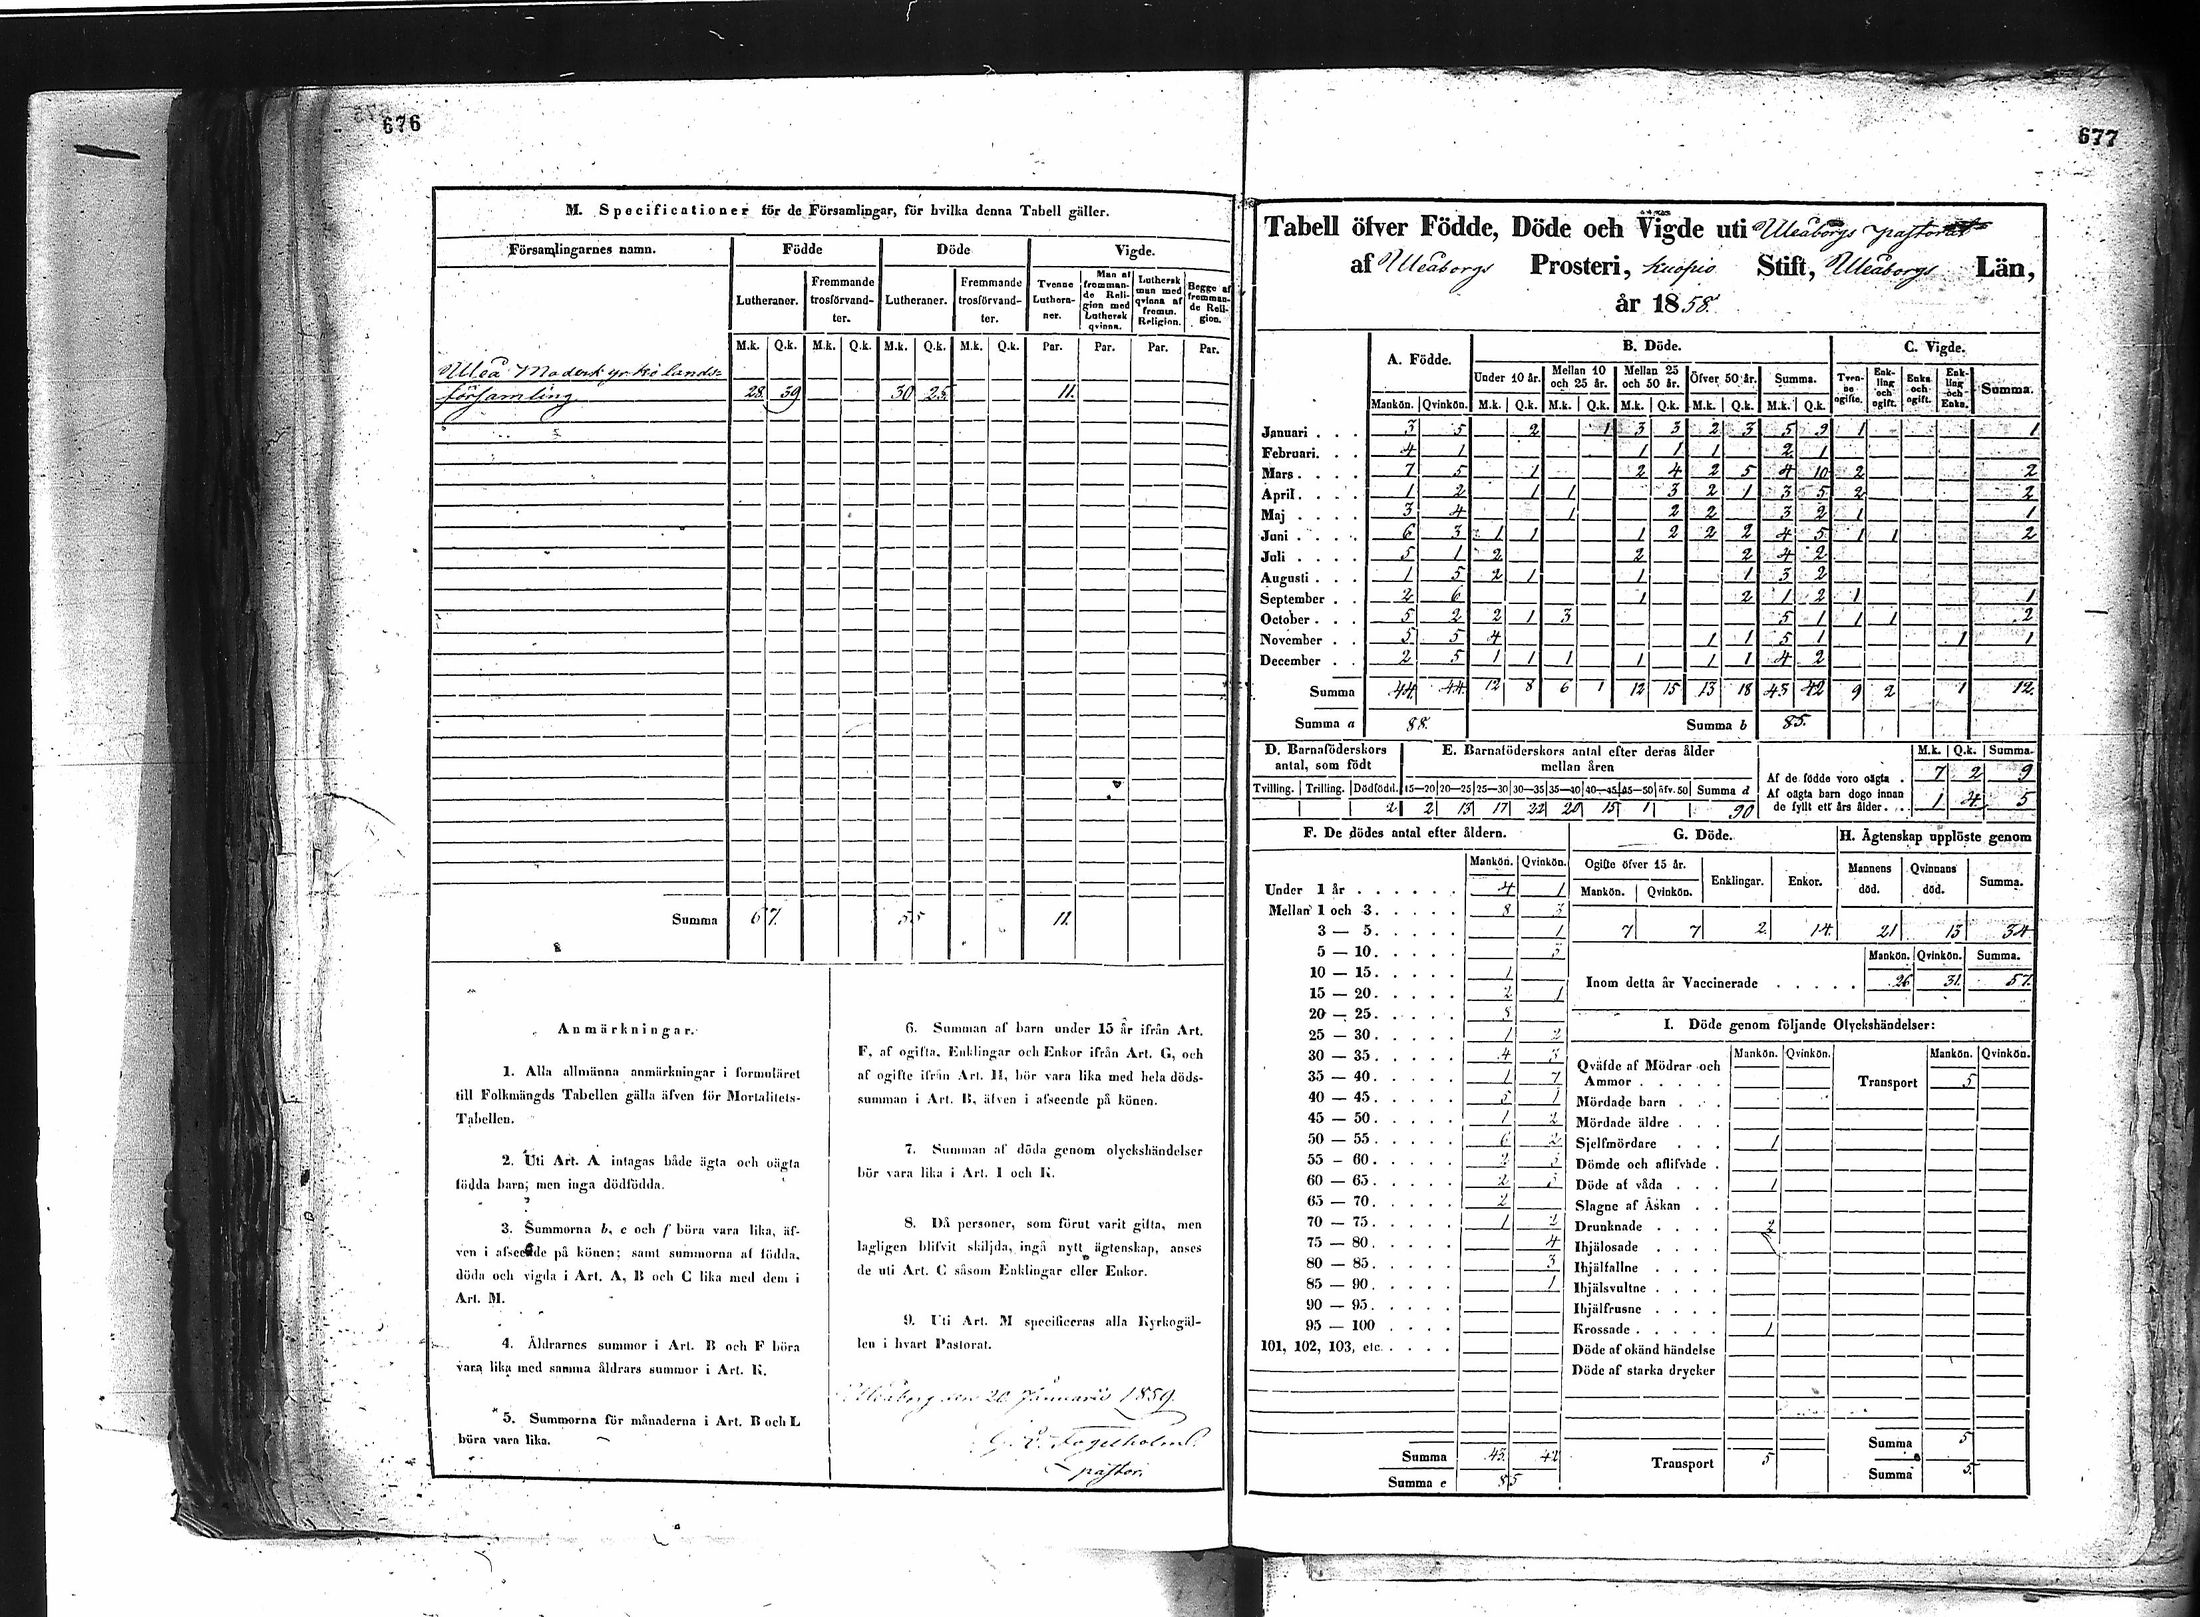 676
M. Specificationer för de Församlingar, för hvilka denna Tabell gäller.
Församlingarnes namn. Födde Döde Vigde.
Lutheraner. Fremmande trosförvandter. Lutheraner. Fremmande trosförvandter. Tvenne Lutheraner. Man af fremmande Religion med Luthersk qvinna. Luthersk man med qvinna af fremm. Religion. Begge af fremmande Religion.
M.k. Q.k. M.k. Q.k. M.k. Q.k. M.k. Q.k. Par. Par. Par. Par.
Uleå Moderkyrko lands-
församling 28. 39 30 25 11.
Summa 67. 55 11.
Anmärkningar.
1. Alla allmänna anmärkningar i formuläret
till Folkmängds Tabellen gälla äfven för Mortalitets-
Tabellen.
2. Uti Art. A intagas både ägta och oägta
födda barn; men inga dödfödda.
3. Summorna b, c och f böra vara lika, äf-
ven i afseende på könen; samt summorna af födda,
döda och vigda i Art. A, B och C lika med dem i
Art. M.
4. Åldrarnes summor i Art. B och F böra
vara lika med samma åldrars summor i Art. K.
5. Summorna för månaderna i Art. B och L
böra vara lika.
6. Summan af barn under 15 år ifrån Art.
F, af ogifta, Enklingar och Enkor ifrån Art. G, och
af ogifte ifrån Art. H, bör vara lika med hela döds-
summan i Art. B, äfven i afseende på könen.
7. Summan af döda genom olyckshändelser
bör vara lika i Art. I och K.
8. Då personer, som förut varit gifta, men
lagligen blifvit skiljda, ingå nytt ägtenskap, anses
de uti Art. C såsom Enklingar eller Enkor.
9. Uti Art. M specificeras alla Kyrkogäl-
len i hvart Pastorat.
Uleåborg den 20 Januarii 1859.
Fogelholm
pastor.
677
Tabell öfver Födde, Döde och Vigde uti Uleåborgs pastorat
af Uleåborgs Prosteri, Kuopio Stift, Uleåborgs Län,
år 1858.
A. Födde. B. Döde. C. Vigde.
Under 10 år. Mellan 10 och 25 år. Mellan 25 och 50 år. Öfver 50 år. Summa. Tvenne ogifte. Enkling och ogift. Enka och ogift. Enkling och Enka. Summa.
Mankön. Qvinkön. M.k. Q.k. M.k. Q.k. M.k. Q.k. M.k. Q.k. M.k. Q.k.
Januari . . . 3 5 2 1 3 3 2 3 5 9 1 1
Februari. . . 4 1 1 1 1 2 1
Mars . . . . 7 5 1 2 4 2 5 4 10 2 2
April . . . . 1 2 1 1 3 2 1 3 5 2 2
Maj . . . . 3 4 1 2 2 3 2 1 1
Juni . . . . 6 3 1 1 1 2 2 2 4 5 1 1 2
Juli . . . . 5 1 2 2 2 4 2
Augusti . . . 1 5 2 1 1 1 3 2
September . . 2 6 1 2 1 2 1 1
October . . . 5 2 2 1 3 5 1 1 1 2
November . . 5 5 4 1 1 5 1 1 1
December . . 2 5 1 1 1 1 1 1 4 2
Summa 44. 44. 12 8 6 1 12 15 13 18 43 42 9 2 1 12.
Summa a 88. Summa b 85.
D. Barnaföderskors antal, som födt
Tvilling. Trilling. Dödfödd.
2
E. Barnaföderskors antal efter deras ålder mellan åren
15—20 20—25 25—30 30—35 35—40 40—45 45—50 öfv. 50 Summa d
2 13 17 22 20 15 1 90
M.k. Q.k. Summa.
Af de födde voro oägta . 7 2 9
Af oägta barn dogo innan
de fyllt ett års ålder. . . 1 4 5
F. De dödes antal efter åldern.
Mankön. Qvinkön.
Under 1 år . . . . . . 4 1
Mellan 1 och 3. . . . . 8 3
3 — 5. . . . . 1
5 — 10. . . . . 3
10 — 15. . . . . 1
15 — 20. . . . . 2 1
20 — 25. . . . .
25 — 30. . . . . 1 2
30 — 35. . . . . 4 3
35 — 40. . . . . 1 7
40 — 45. . . . . 5 1
45 — 50. . . . . 1 2
50 — 55. . . . . 6 2
55 — 60. . . . . 2 3
60 — 65. . . . . 2 3
65 — 70. . . . . 2
70 — 75. . . . . 1 2
75 — 80. . . . . 4
80 — 85. . . . . 3
85 — 90. . . . . 1
90 — 95. . . . .
95 — 100 . . . .
101, 102, 103, etc. . . . .
Summa 43. 42
Summa e 85
G. Döde.
Ogifte öfver 15 år. Enklingar. Enkor.
Mankön. Qvinkön.
7 7 2 14.
H. Ägtenskap upplöste genom
Mannens död. Qvinnans död. Summa.
21 13 34
Mankön. Qvinkön. Summa.
Inom detta år Vaccinerade . . . . . 26 31. 57.
I. Döde genom följande Olyckshändelser:
Mankön. Qvinkön. Mankön. Qvinkön.
Qväfde af Mödrar och
Ammor . . . . . Transport 5
Mördade barn . . .
Mördade äldre . . .
Sjelfmördare . . . 1
Dömde och aflifvade .
Döde af våda . . . 1
Slagne af Åskan . .
Drunknade . . . . 2
Ihjälosade . . . .
Ihjälfallne . . . .
Ihjälsvultne . . . .
Ihjälfrusne . . . .
Krossade . . . . . 1
Döde af okänd händelse
Döde af starka drycker
Transport 5
Summa 5
Summa 5.